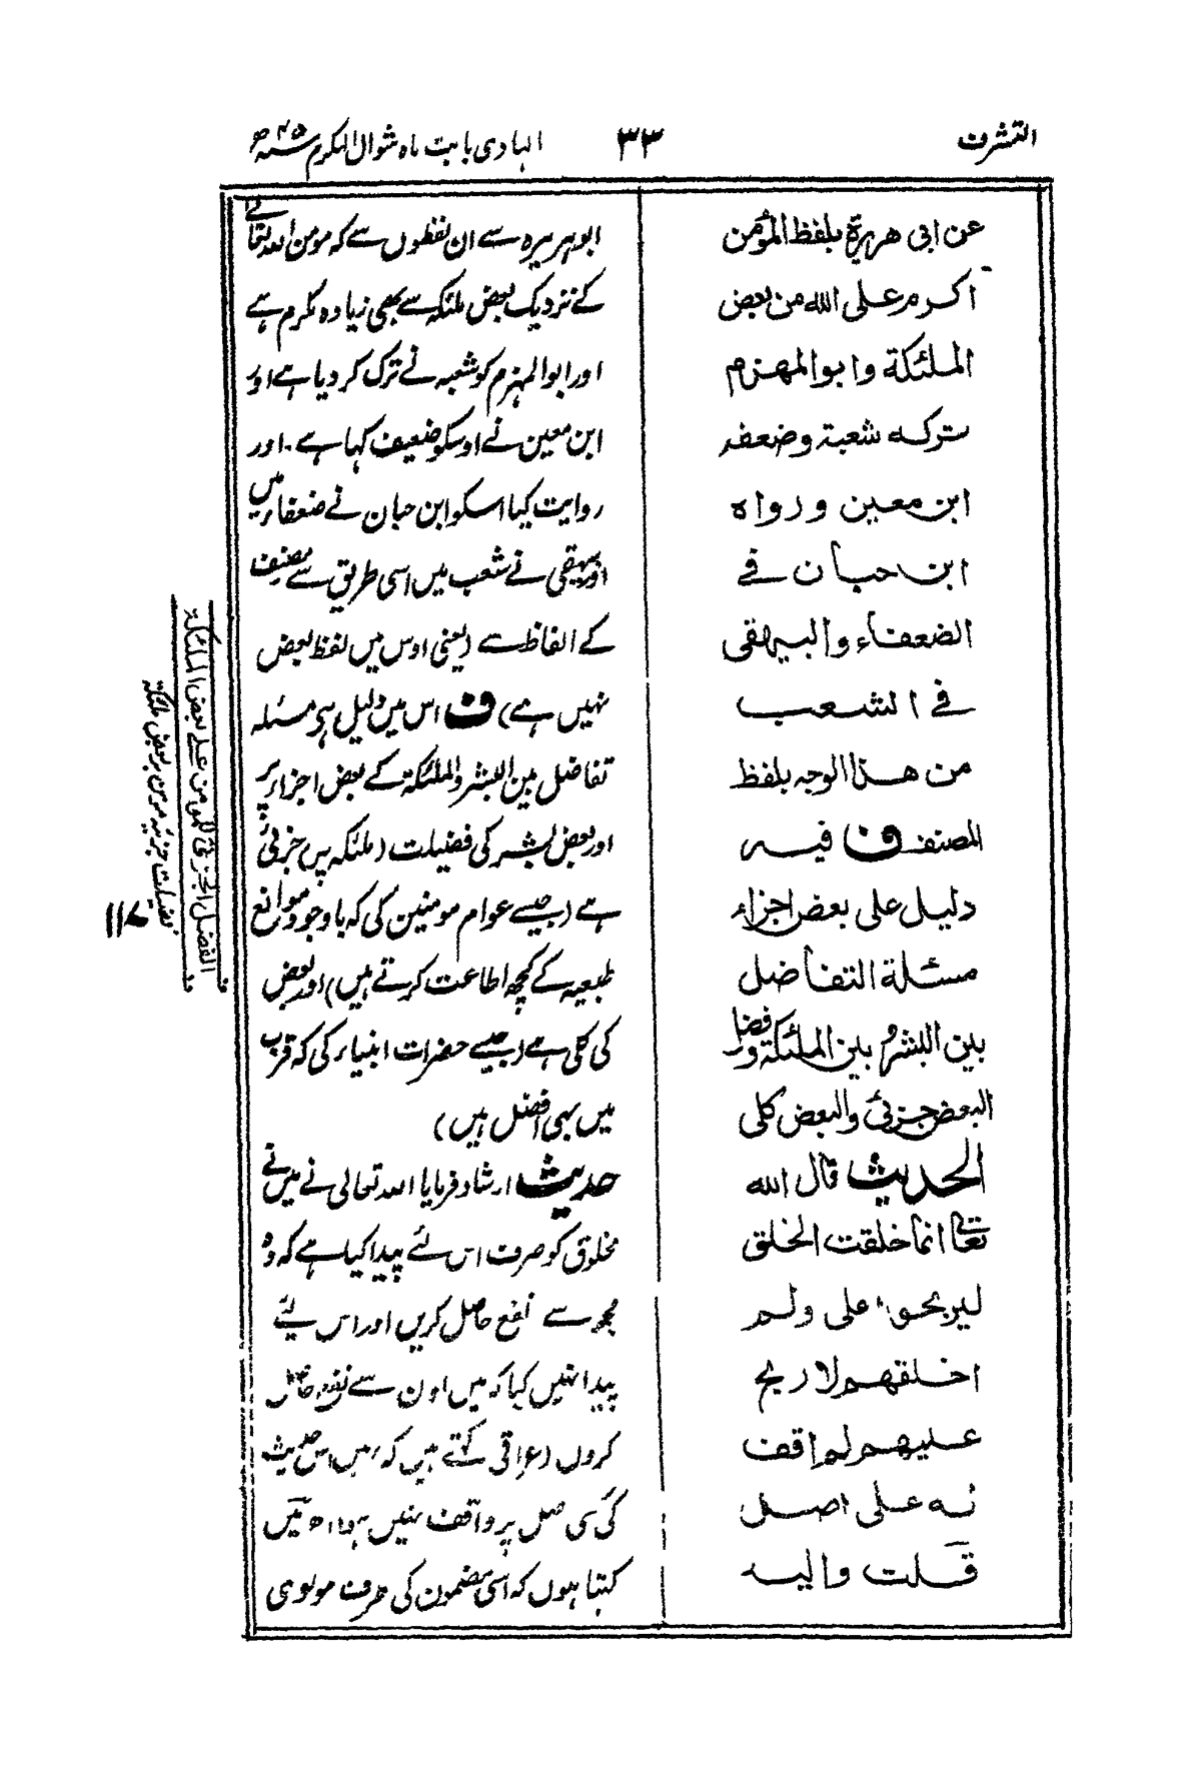 التشرف
٣٣
الہادی بابت ماہ شوال المکرم ۴۵ھ
عن ابی هريرة بلفظ المؤمن
اکرم علی الله من بعض
الملئكة وابوالمهزم
تركه شعبة وضعفه
ابن معين ورواه
ابن حبان فے
الضعفاء والبيهقی
فے الشعب
من هذا الوجه بلفظ
المصنف ف فيه
دليل علی بعض اجزاء
مسئلة التفاضل
بين البشر وبين الملئكة وفضل
البعض جزئی والبعض کلی
الحديث قال الله
تعالے انما خلقت الخلق
ليربحوا علی ولم
اخلقهم لاربح
عليهم لم اقف
له علی اصل
قلت واليه
ابوہریرہ سے ان لفظوں سے کہ مومن اللہ تعالےٰ
کے نزدیک بعض ملئکہ سے بھی زیادہ مکرم ہے
اور ابوالمہزم کو شعبہ نے ترک کر دیا ہے اور
ابن معین نے اوسکو ضعیف کہا ہے۔ اور
روایت کیا اسکو ابن حبان نے ضعفاء میں
اور بیہقی نے شعب میں اسی طریق سے مصنف
کے الفاظ سے (یعنی اوس میں لفظ بعض
نہیں ہے) ف اس میں دلیل ہی مسئلہ
تفاضل بین البشر والملئکۃ کے بعض اجزا پر
اور بعض بشر کی فضیلت (ملئکہ پر) جزئی
ہے (جیسے عوام مومنین کی کہ باوجود موانع
طبعیہ کے کچھ اطاعت کرتے ہیں) اور بعض
کی کلی ہے (جیسے حضرات انبیاء کی کہ قرب
میں بہی افضل ہیں)
حدیث ارشاد فرمایا اللہ تعالی نے میں نے
مخلوق کو صرف اس لئے پیدا کیا ہے کہ وہ
مجھ سے نفع حاصل کریں اور اس لیئے
پیدا نہیں کیا کہ میں اون سے نفع حاصل
کروں (عراقی کہتے ہیں کہ) میں اس حدیث
کی کسی اصل پر واقف نہیں ہوا اھ میں
کہتا ہوں کہ اسی مضمون کی طرف مولوی
الفضل الجزئی للمومن علے بعض الملئکۃ
فضیلت جزئیہ مومن بر بعض ملئکۃ
۱۱۷